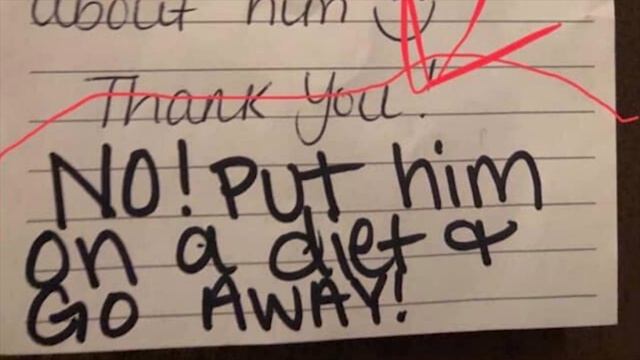 about him
Thank You!
NO! PUT him
on a diet &
GO AWAY!